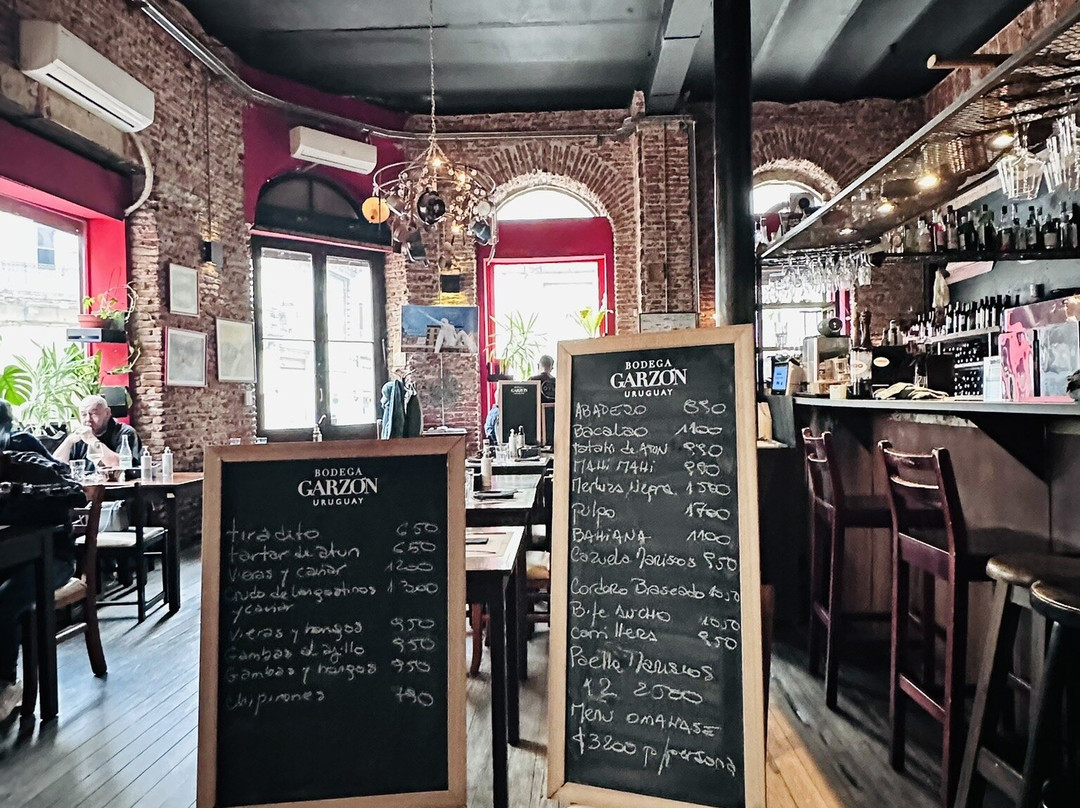 BODEGA
GARZÓN
URUGUAY
tiradito 650
tartar de atun 650
Vieras y caviar 1200
Crudo de langostinos 1300
y caviar
Vieras y hongos 950
Gambas al ajillo 950
Gambas y hongos 950
chipirones 790
BODEGA
GARZÓN
URUGUAY
ABADEJO 890
Bacalao 1100
tataki de atun 990
MAHI MAHI 990
Merluza Negra 1500
Pulpo 1700
BAHIANA 1100
Cazuela Mariscos 950
Cordero Braseado 1050
Bife ANCHO 1050
Carrillera 950
Paella Mariscos
x2 2500
Menu OMAKASE
$3200 p/persona
GARZÓN